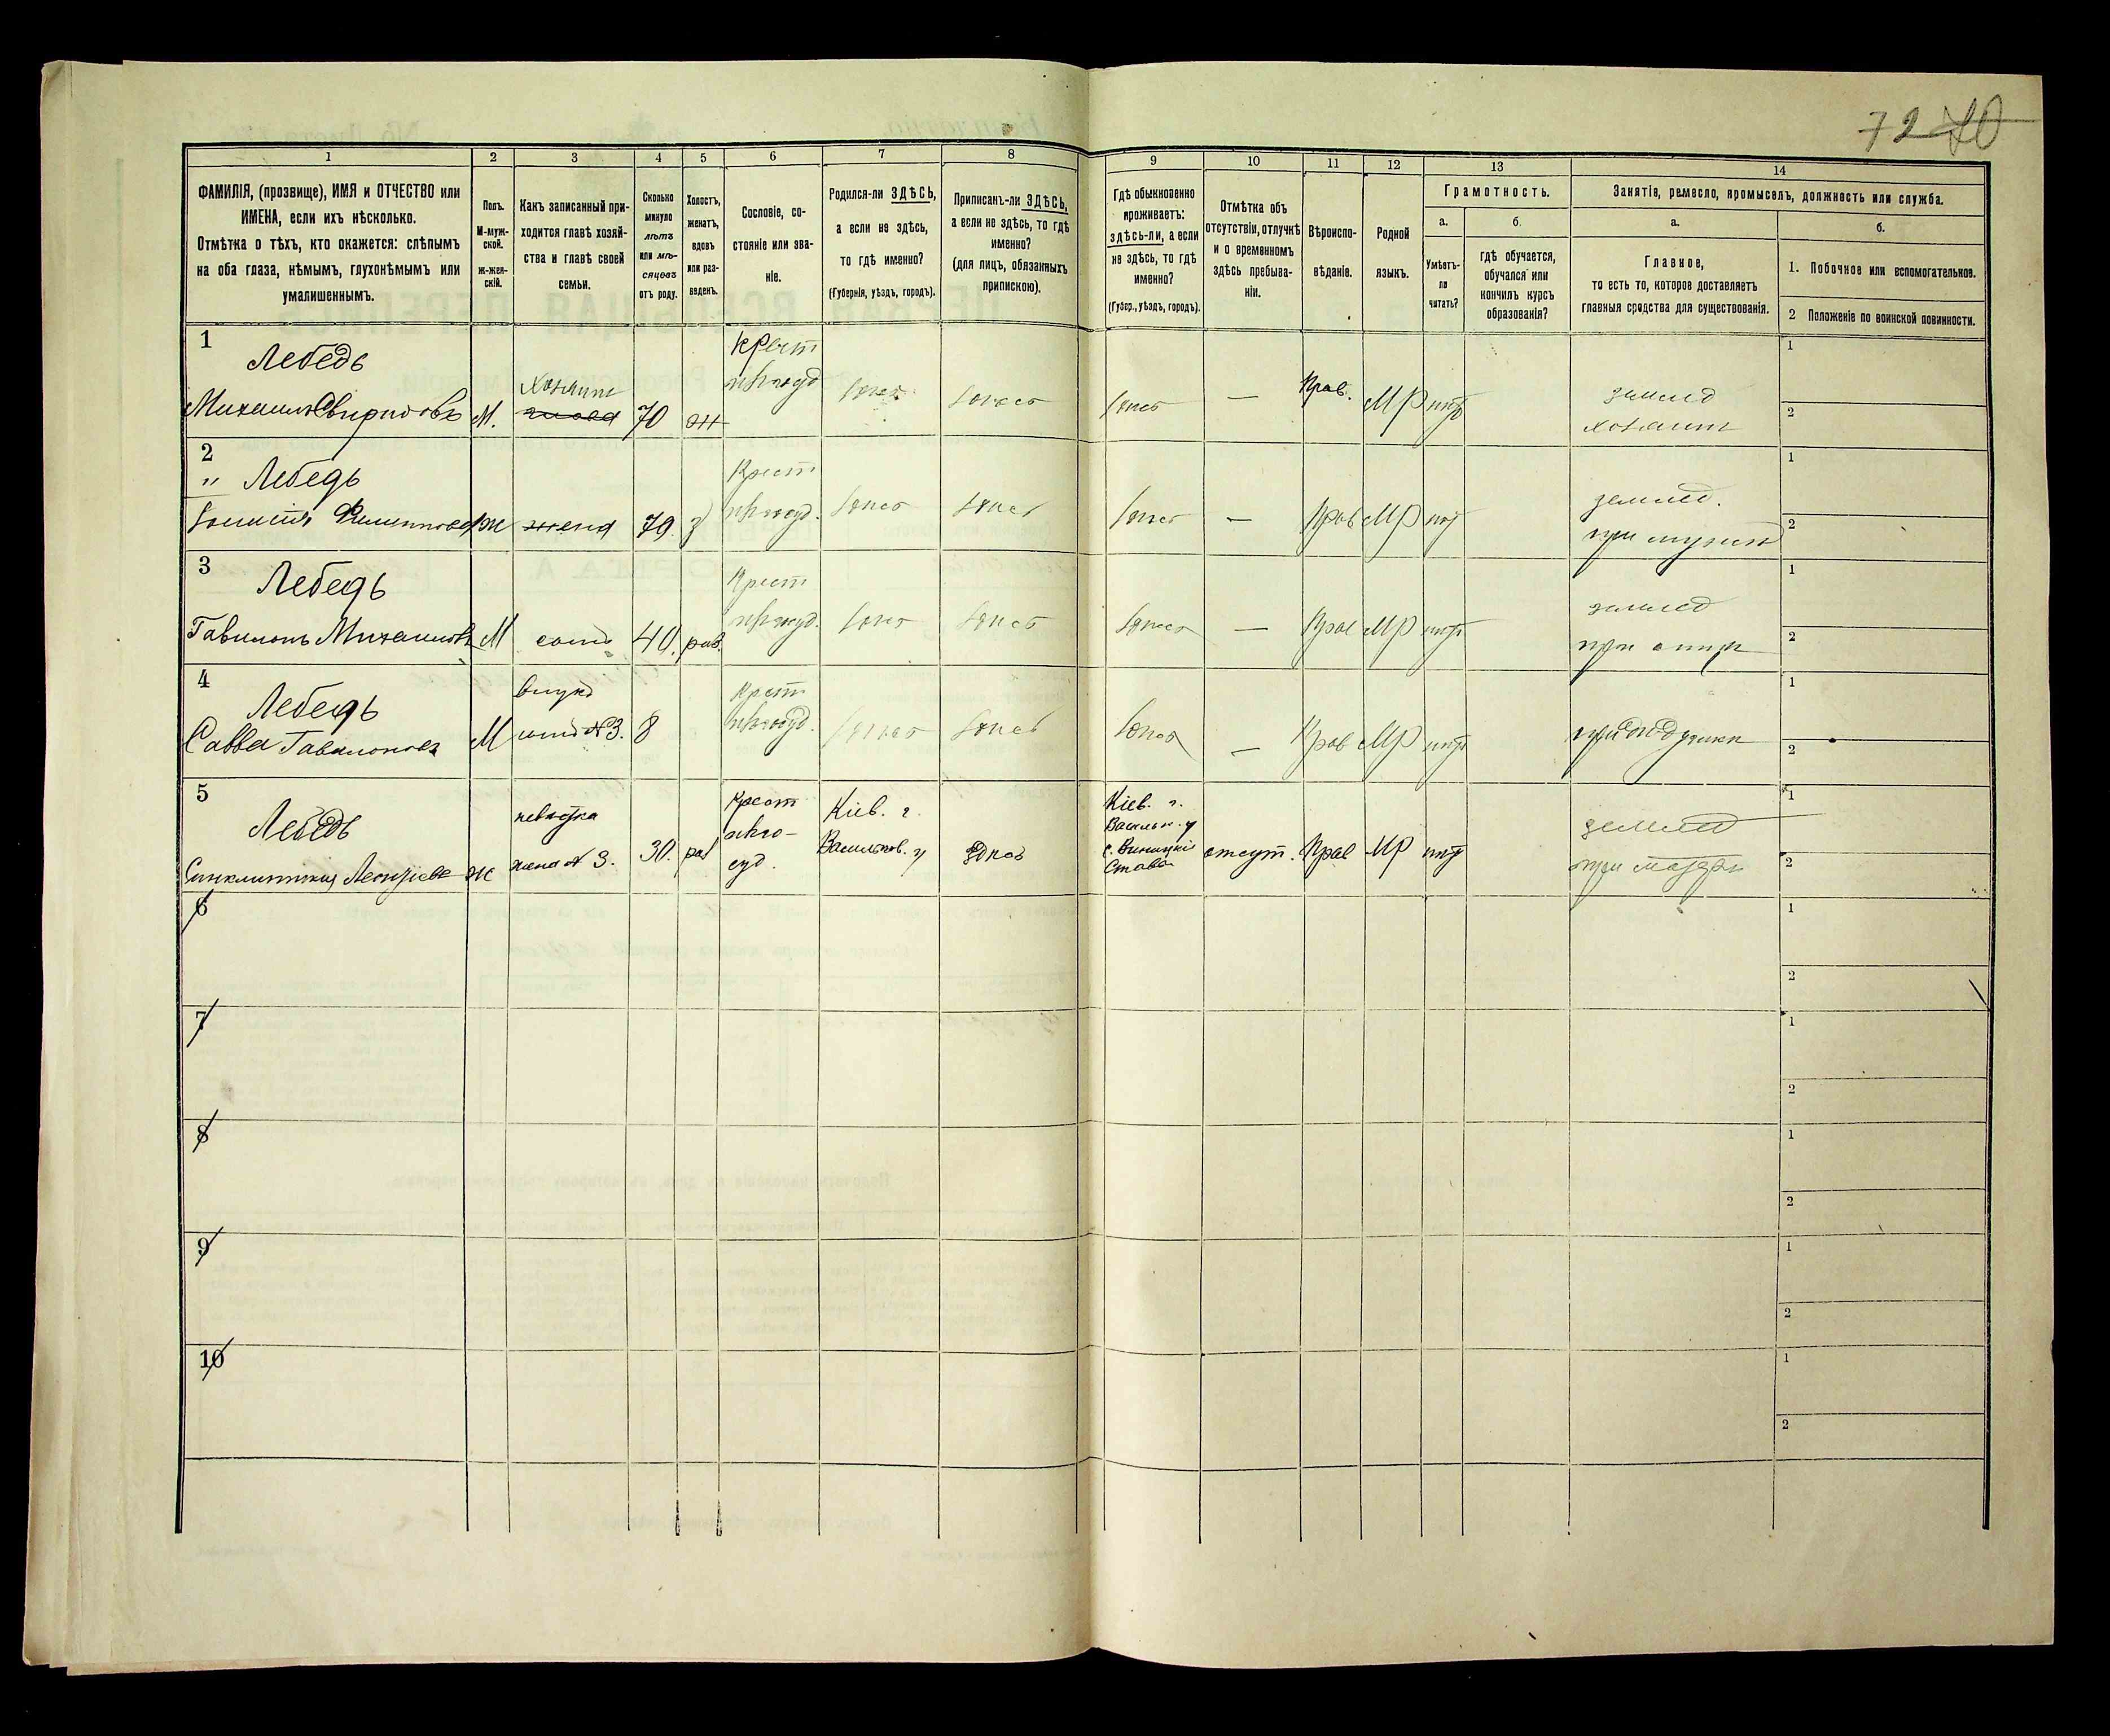 72 70
1
2
3
4
5
6
7
8
9
10
11
12
13
14
ФАМИЛІЯ, (прозвище), ИМЯ и ОТЧЕСТВО или
ИМЕНА, если ихъ нѣсколько.
Отмѣтка о тѣхъ, кто окажется: слѣпымъ
на оба глаза, нѣмымъ, глухонѣмымъ или
умалишеннымъ.
Полъ.
М-муж-
ской.
ж-жен-
скій.
Какъ записанный при-
ходится главѣ хозяй-
ства и главѣ своей
семьи.
Сколько
минуло
лѣтъ
или мѣ-
сяцевъ
отъ роду.
Холостъ,
женатъ,
вдовъ
или раз-
веденъ.
Сословіе, со-
стояніе или зва-
ніе.
Родился-ли ЗДѢСЬ,
а если не здѣсь,
то гдѣ именно?
(Губернія, уѣздъ, городъ).
Приписанъ-ли ЗДѢСЬ,
а если не здѣсь, то гдѣ
именно?
(для лицъ, обязанныхъ
припискою).
Гдѣ обыкновенно
проживаетъ:
здѣсь-ли, а если
не здѣсь, то гдѣ
именно?
(Губер., уѣздъ, городъ).
Отмѣтка объ
отсутствіи, отлучкѣ
и о временномъ
здѣсь пребыва-
ніи.
Вѣроиспо-
вѣданіе.
Родной
языкъ.
Грамотность.
а.
Умѣетъ-
ли
читать?
б.
гдѣ обучается,
обучался или
кончилъ курсъ
образованія?
Занятіе, ремесло, промыселъ, должность или служба.
а.
Главное,
то есть то, которое доставляетъ
главныя средства для существованія.
б.
1. Побочное или вспомогательное.
2 Положеніе по воинской повинности.
1
Лебедь
Михаилъ Свиридовъ
М.
Хозяинъ
70
ж
Крест
здѣсь
здѣсь
здѣсь
—
Прав.
МР
нѣтъ
земед
хозяинъ
1
2
2
" Лебедь
Филиппова
ж
жена
70
з
Крест
здѣсь
здѣсь
здѣсь
—
Прав
МР
нѣт
землед.
при мужѣ
1
2
3
Лебедь
Гавилонъ Михаиловъ
М
сынъ
40.
раз.
Крест
здѣсь
здѣсь
здѣсь
—
Прав
МР
нѣтъ
землед
при отцѣ
1
2
4
Лебедь
Савва Гавилоновъ
М
внукъ
сынъ №3.
8
Крест
здѣсь
здѣсь
здѣсь
—
Прав
МР
нѣтъ
при дѣдушкѣ
1
2
5
Лебедь
Синклитикия Леонтіева
ж
невѣстка
жена № 3.
30.
раз
Крест
Кіев. г.
Васильков. у
здѣсь
Кіев. г.
Васильк. у
с. Виницкіе
Ставы
отсут.
Прав
МР
нѣтъ
землед
1
2
6
1
2
7
1
2
8
1
2
9
1
2
10
1
2